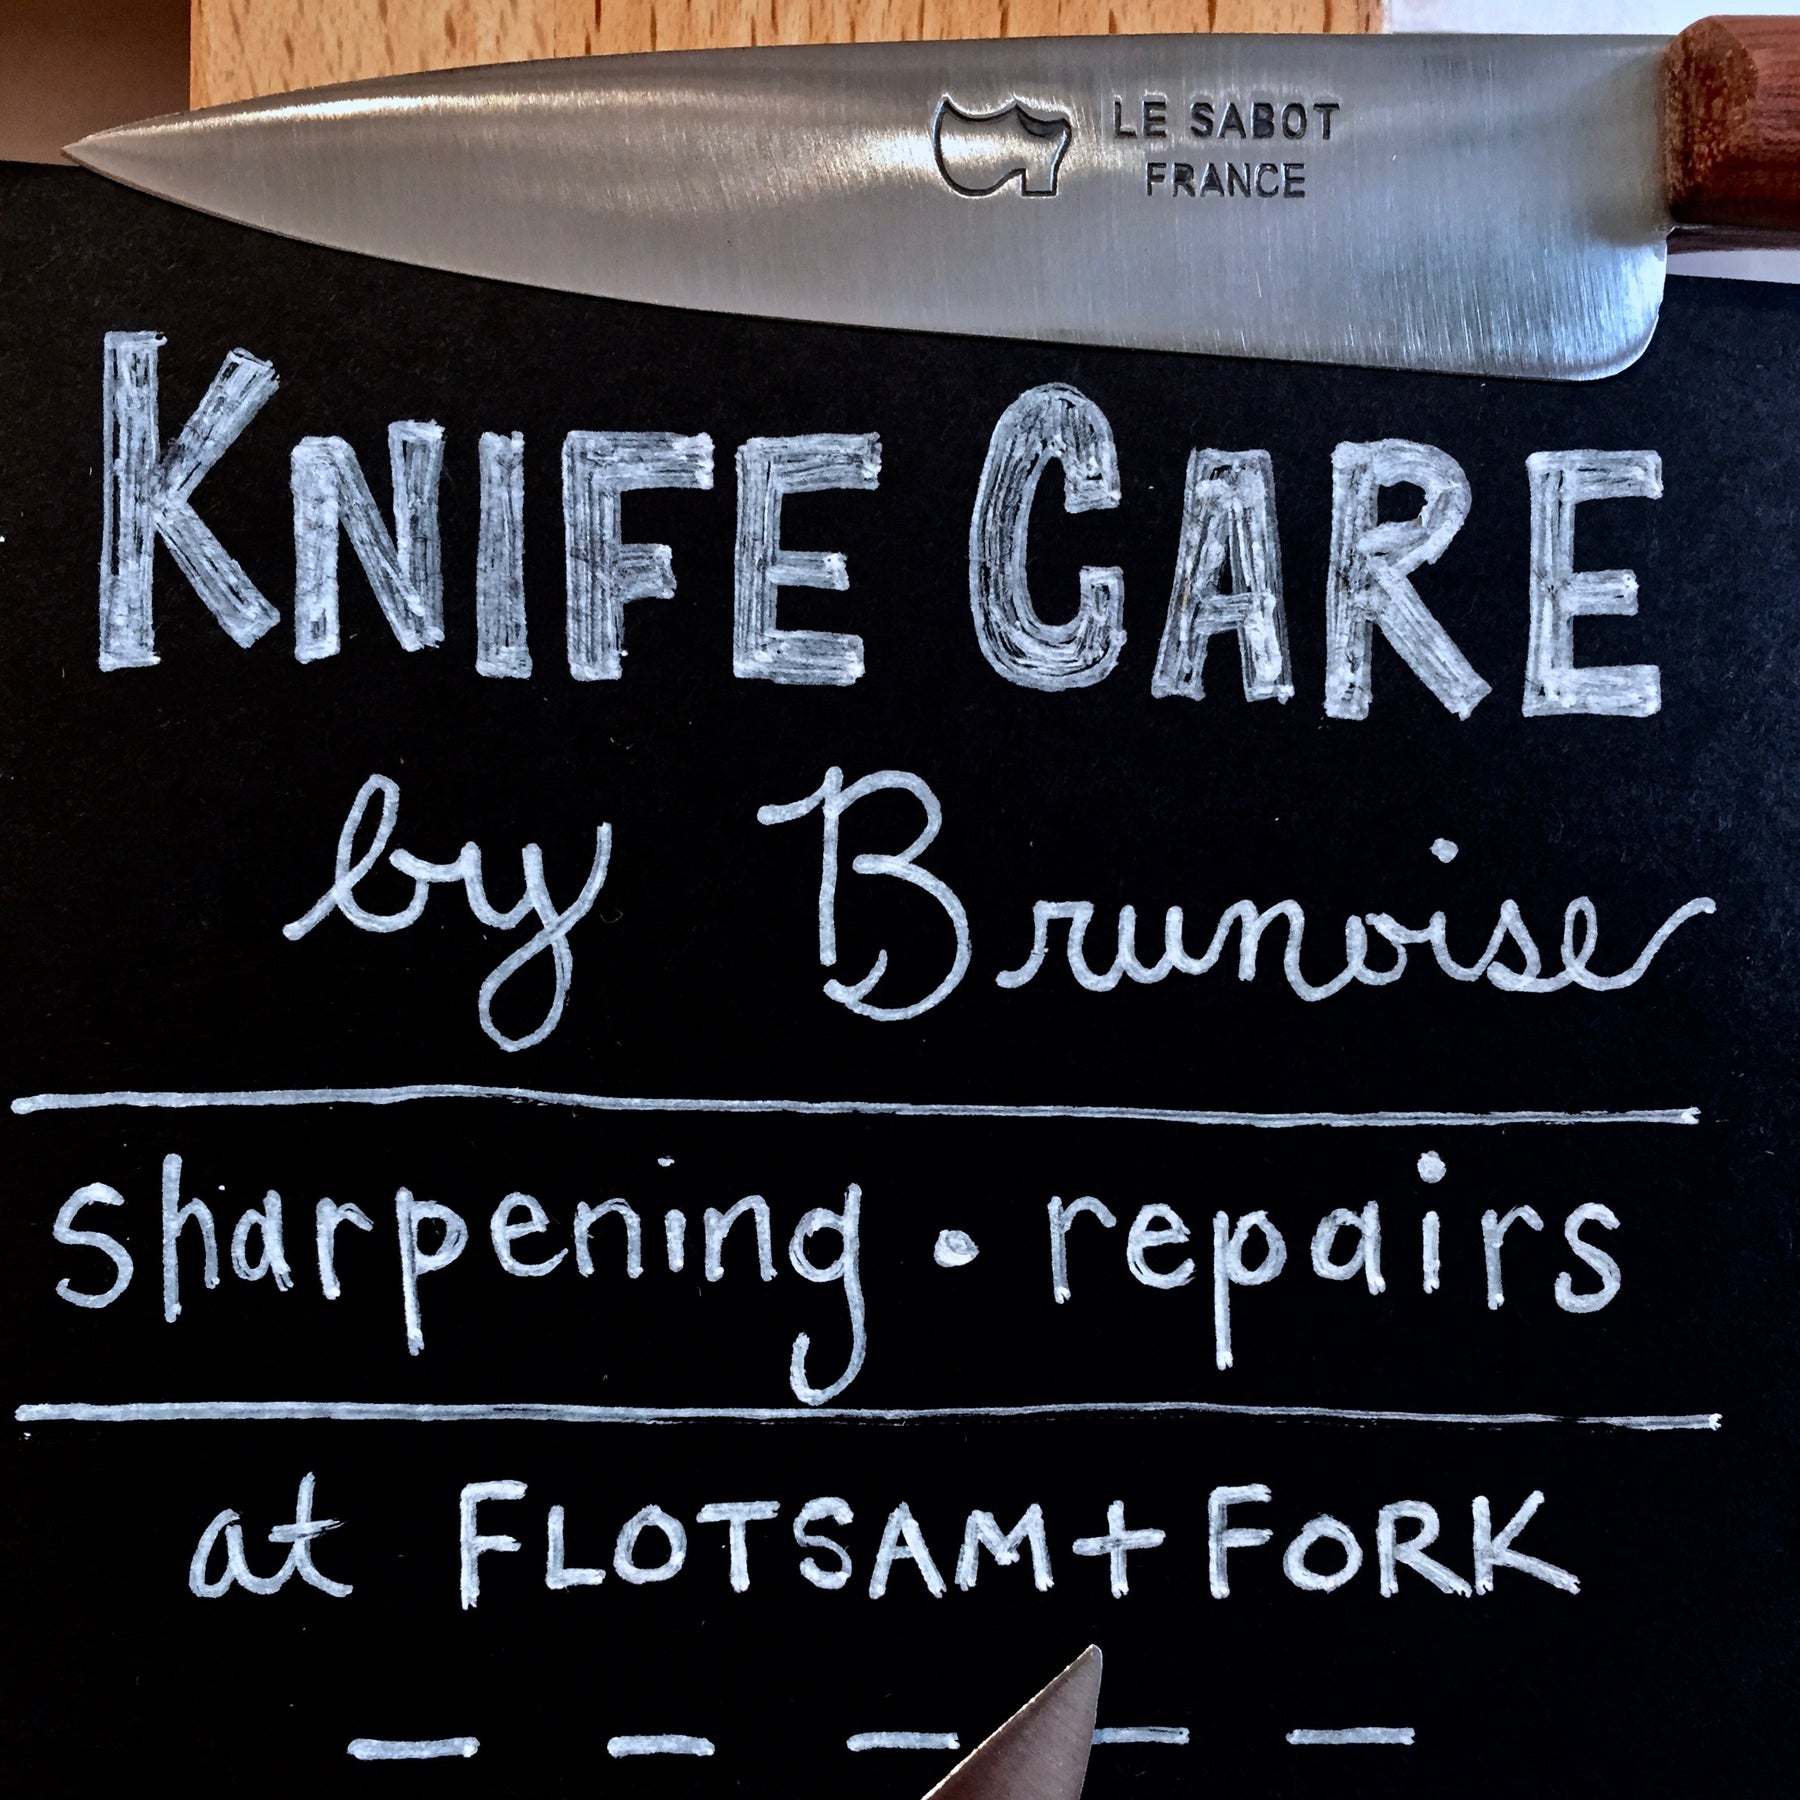 LE SABOT
FRANCE
KNIFE CARE
by Brunoise
sharpening • repairs
at FLOTSAM + FORK